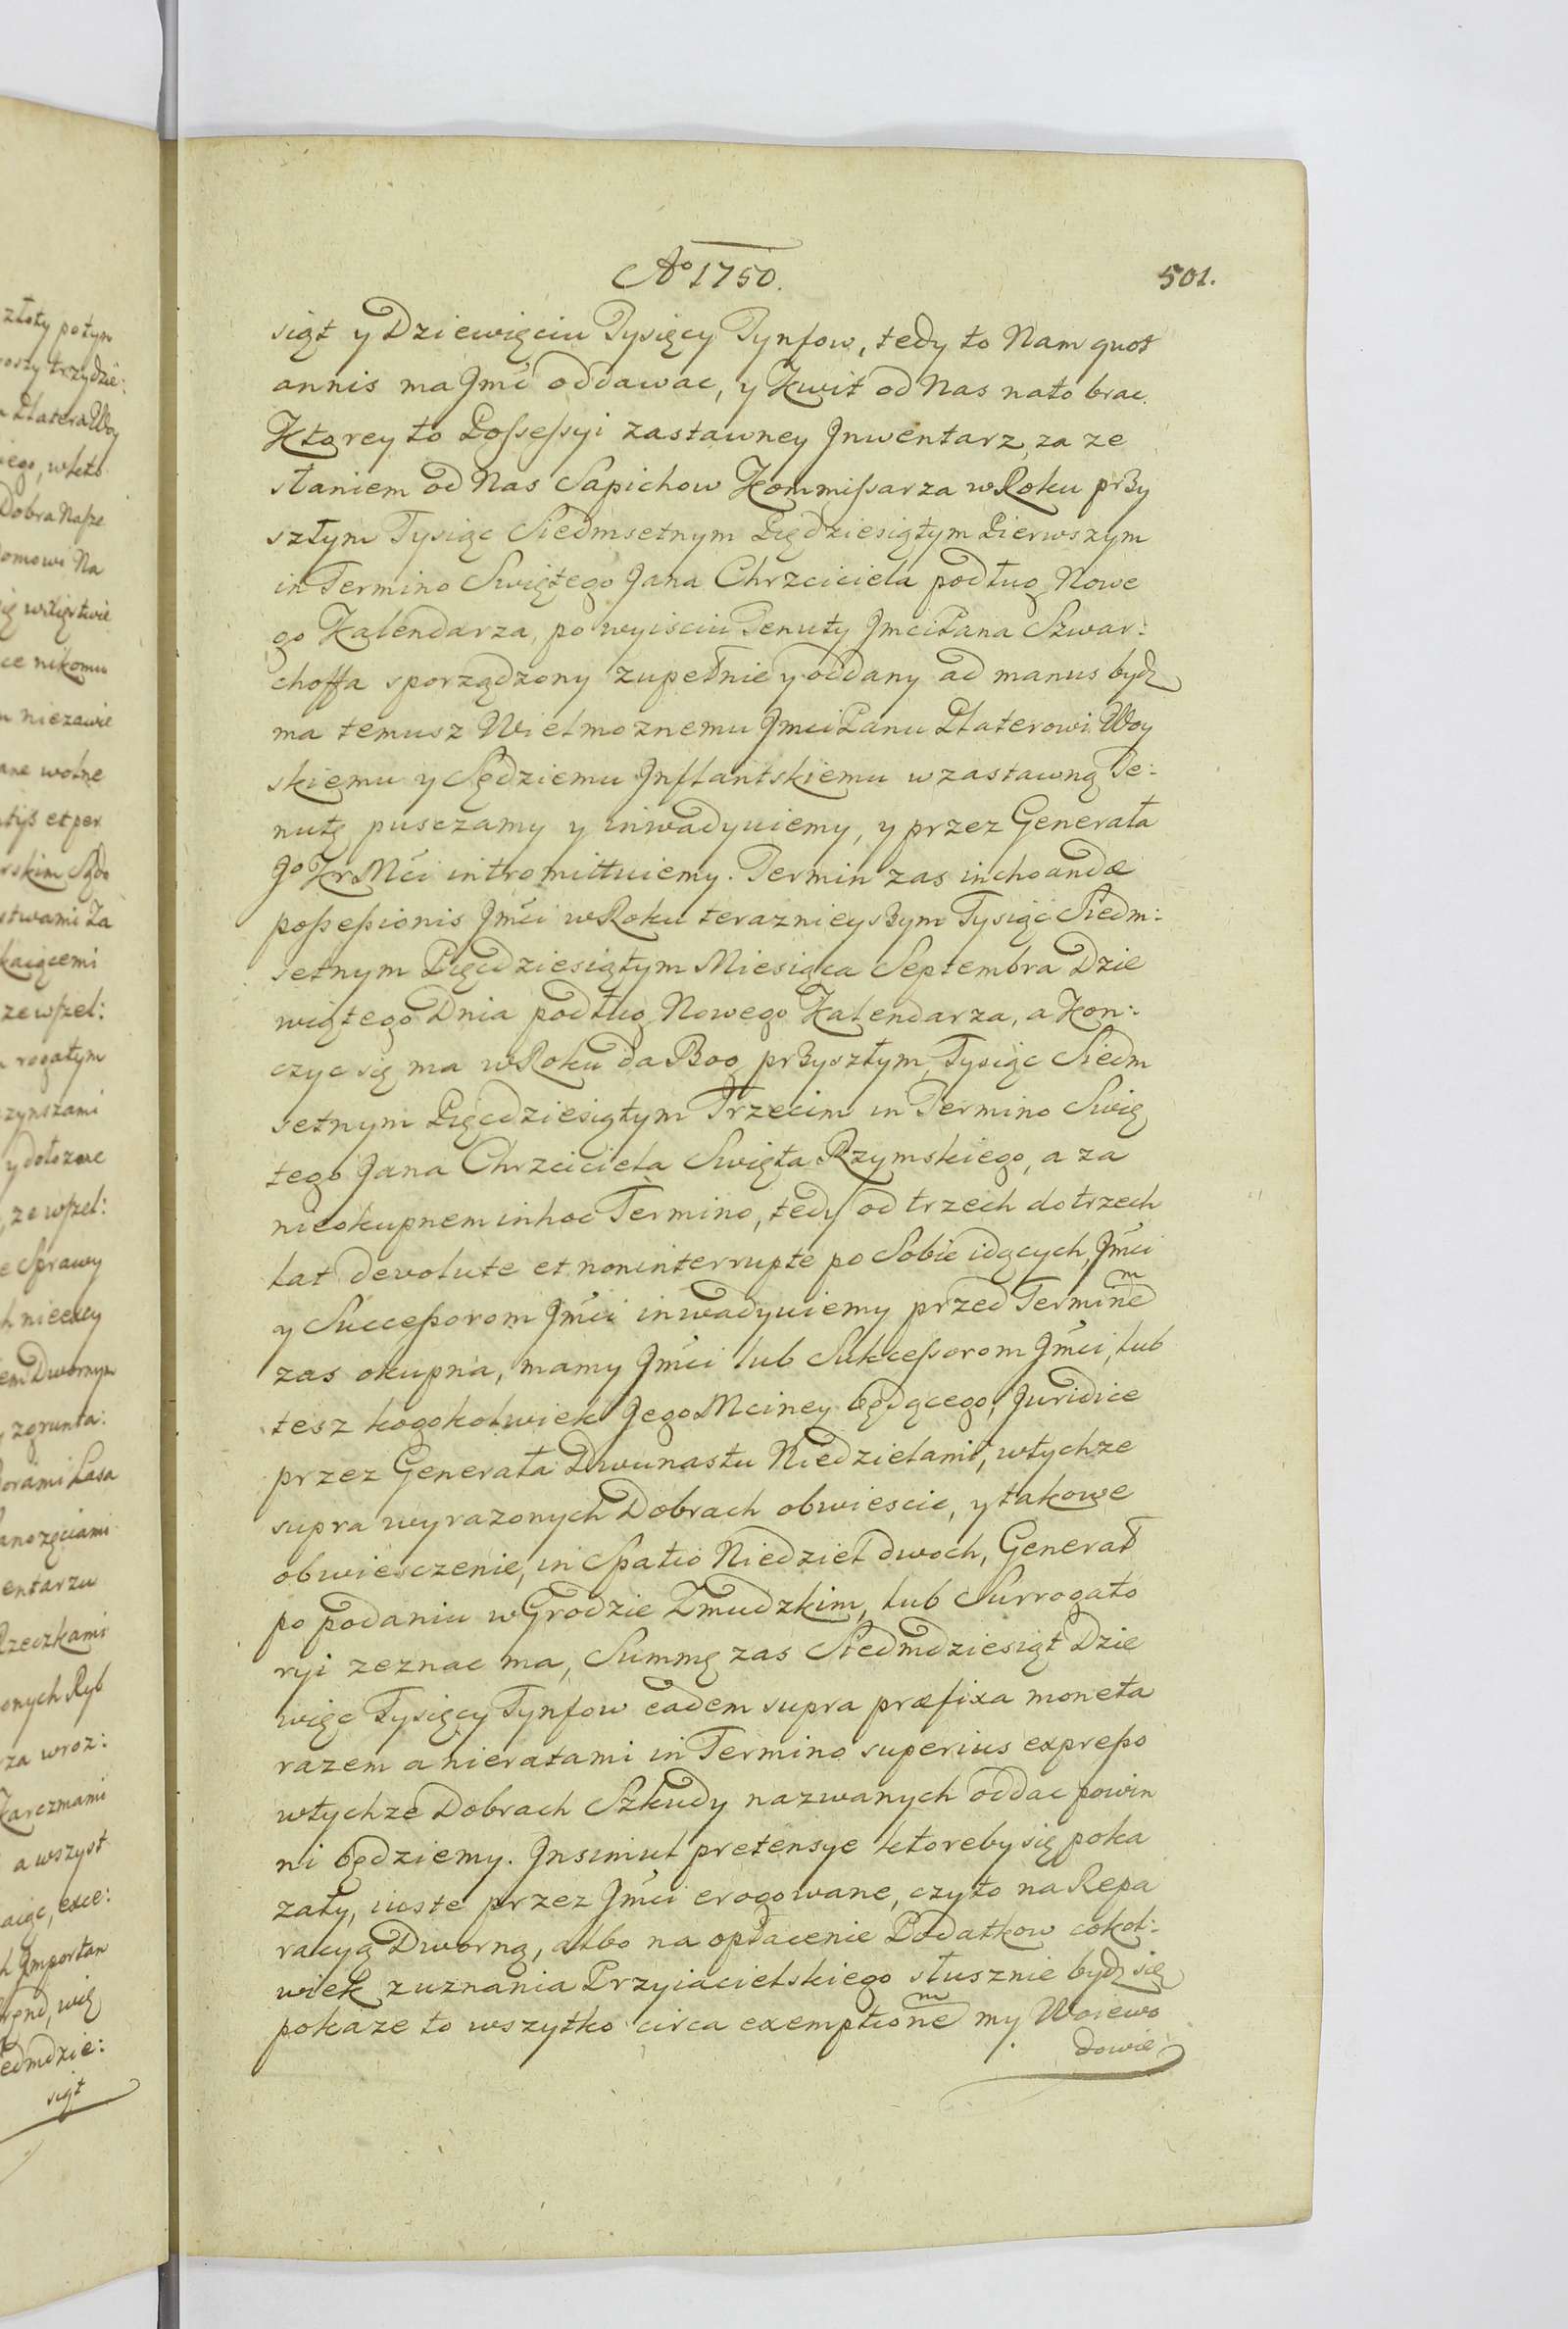 Aō 1750.
501.
siąt y Dziewięciu Tysięcy Tynfow, tedy to Nam quot
annis ma Jmć oddawac, y Kwit od Nas nato brac.
Ktorey to Possessyi zastawney Jnwentarz, za ze
słaniem od Nas Sapiehow Kommissarza w Roku przy
szłym Tysiąc Siedmsetnym Pięćdziesiątym Pierwszym
in Termino Swiętego Jana Chrzciciela podług Nowe
go Kalendarza, po wyisciu Tenuty JmciPana Szwar:
choffa sporządzony zupełnie y oddany ad manus bydz
ma temusz Wielmoznemu JmciPanu Platerowi Woy
skiemu y Sędziemu Jnflantskiemu w zastawną Te:
nutę pusczamy y inwadyuiemy, y przez Generała
Jº Kr Mći intromittuiemy. Termin zas inchoandæ
possessionis Jmći w Roku teraznieyszym Tysiąc Siedm:
setnym Pięćdziesiątym Miesiąca Septembra Dzie
wiątego Dnia podług Nowego Kalendarza, a Kon:
czyc się ma w Roku da Bog przyszłym, Tysiąc Siedm
setnym Pięćdziesiątym Trzecim in Termino Swię
tego Jana Chrzciciela Swięta Rzymskiego, a za
nieokupnem inhoc Termino, tedy od trzech do trzech
lat devolute et noninterrupte po Sobie idących, Jmći
y Successorom Jmći inwadyuiemy przed Termine͂m
zas okupna, mamy Jmći lub Sukcessorom Jmći, lub
tesz kogokolwiek Jego Mciney będącego, Juridice
przez Generała Dwunastu Niedzielami, wtychze
supra wyrazonych Dobrach obwiescic, y takowe
obwiesczenie, in Spatio Niedziel dwoch, Generał
po podaniu w Grodzie Zmudzkim, lub Surrogato
ryi zeznac ma, Summę zas Siedmdziesiąt Dzie
więc Tysięcy Tynfow eadem supra præfixa moneta
razem a nieratami in Termino superius expresso
wtychze Dobrach Szkudy nazwanych oddac powin
ni będziemy. Jnsimul pretensye ktoreby się poka
zały, iuste przez Jmći erogowane, czyto na Repa
racyą Dworną, albo na opłacenie Podatkow cokol:
wiek z uznania Przyiacielskiego słusznie bydz się
pokaze to wszytko circa exemptione͂m my Woiewo
dowie